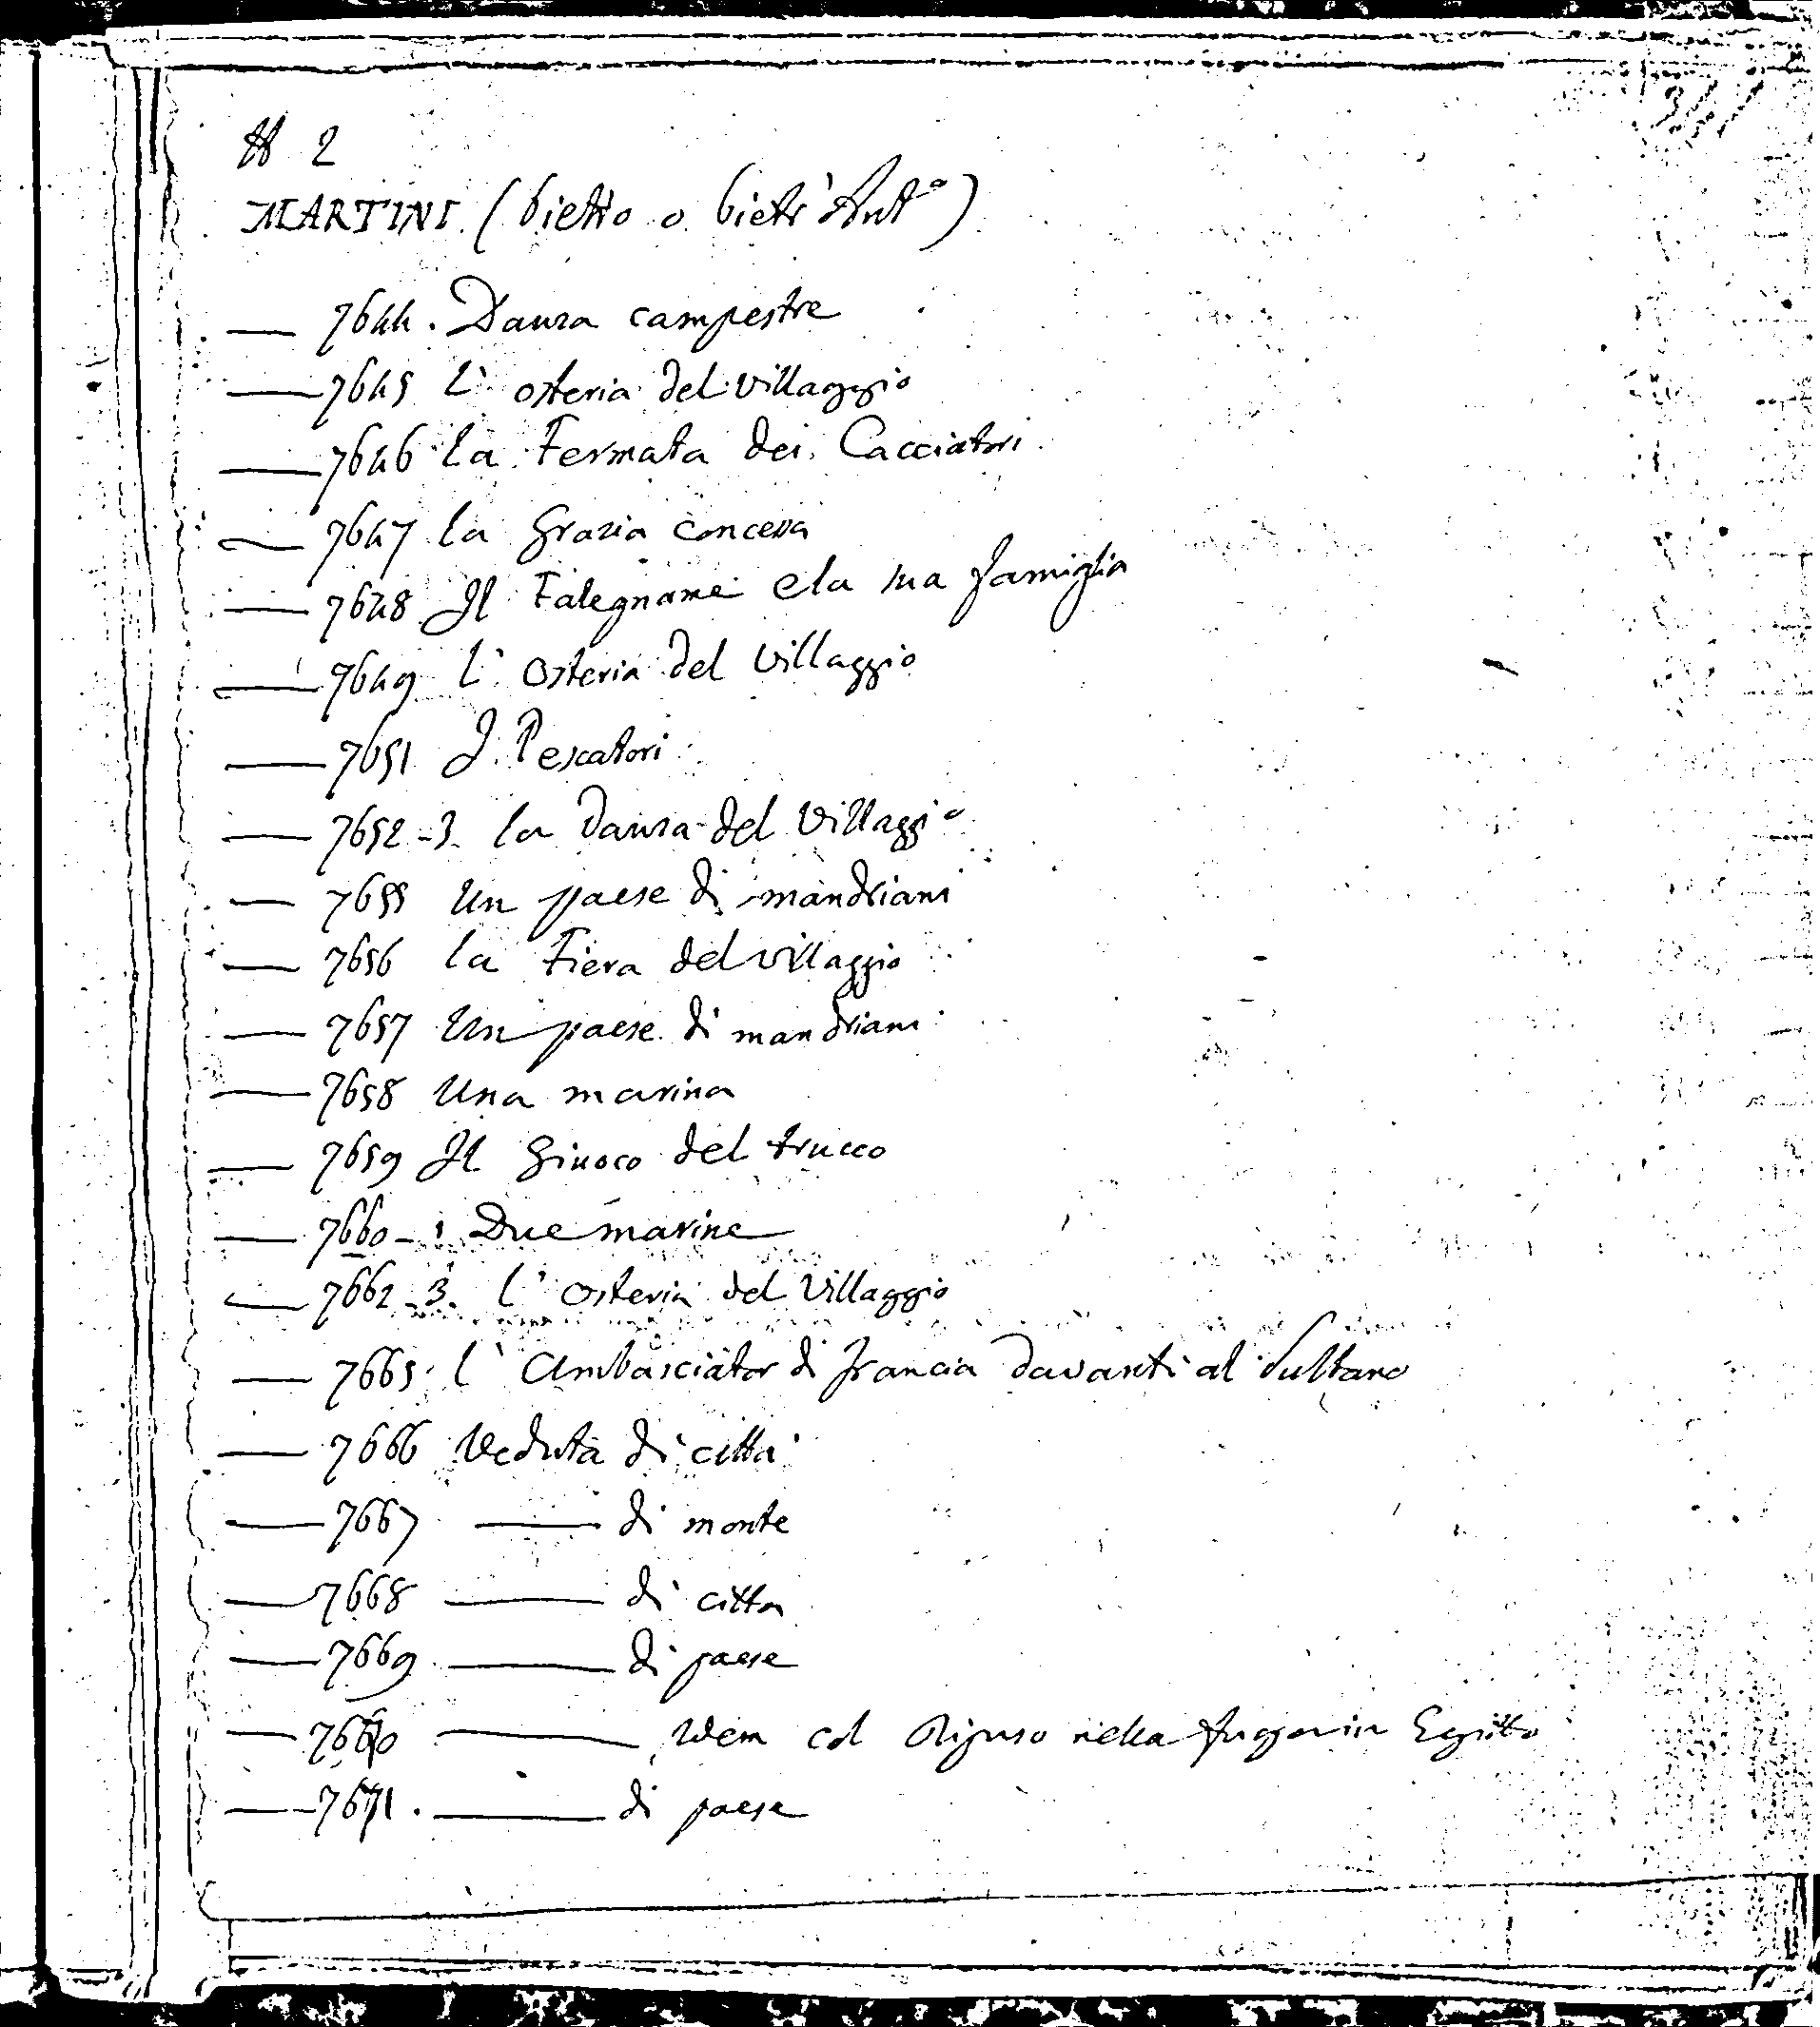 # 2
MARTINI (Pietro o Pietr' Antº)
— 7644. Danza campestre
— 7645 L' osteria del villaggio
— 7646 La Fermata dei Cacciatori
— 7647 la Grazia concessa
— 7648 Il Falegname e la sua famiglia
— 7649 L' Osteria del villaggio
— 7651 I Pescatori
— 7652-3. la Danza del Villaggio
— 7655 Un paese di mandriani
— 7656 la Fiera del villaggio
— 7657 Un paese di mandriani
— 7658 Una marina
— 7659 Il Giuoco del trucco
— 7660-1 Due marine
— 7662-3. l' Osteria del Villaggio
— 7665. l' Ambasciator di Francia davanti al Sultano
— 7666 Veduta di città
— 7667 — di monte
— 7668 — di citta
— 7669 — di paese
— 7670 — Idem col Riposo nella fuga in Egitto
— 7671. — di paese